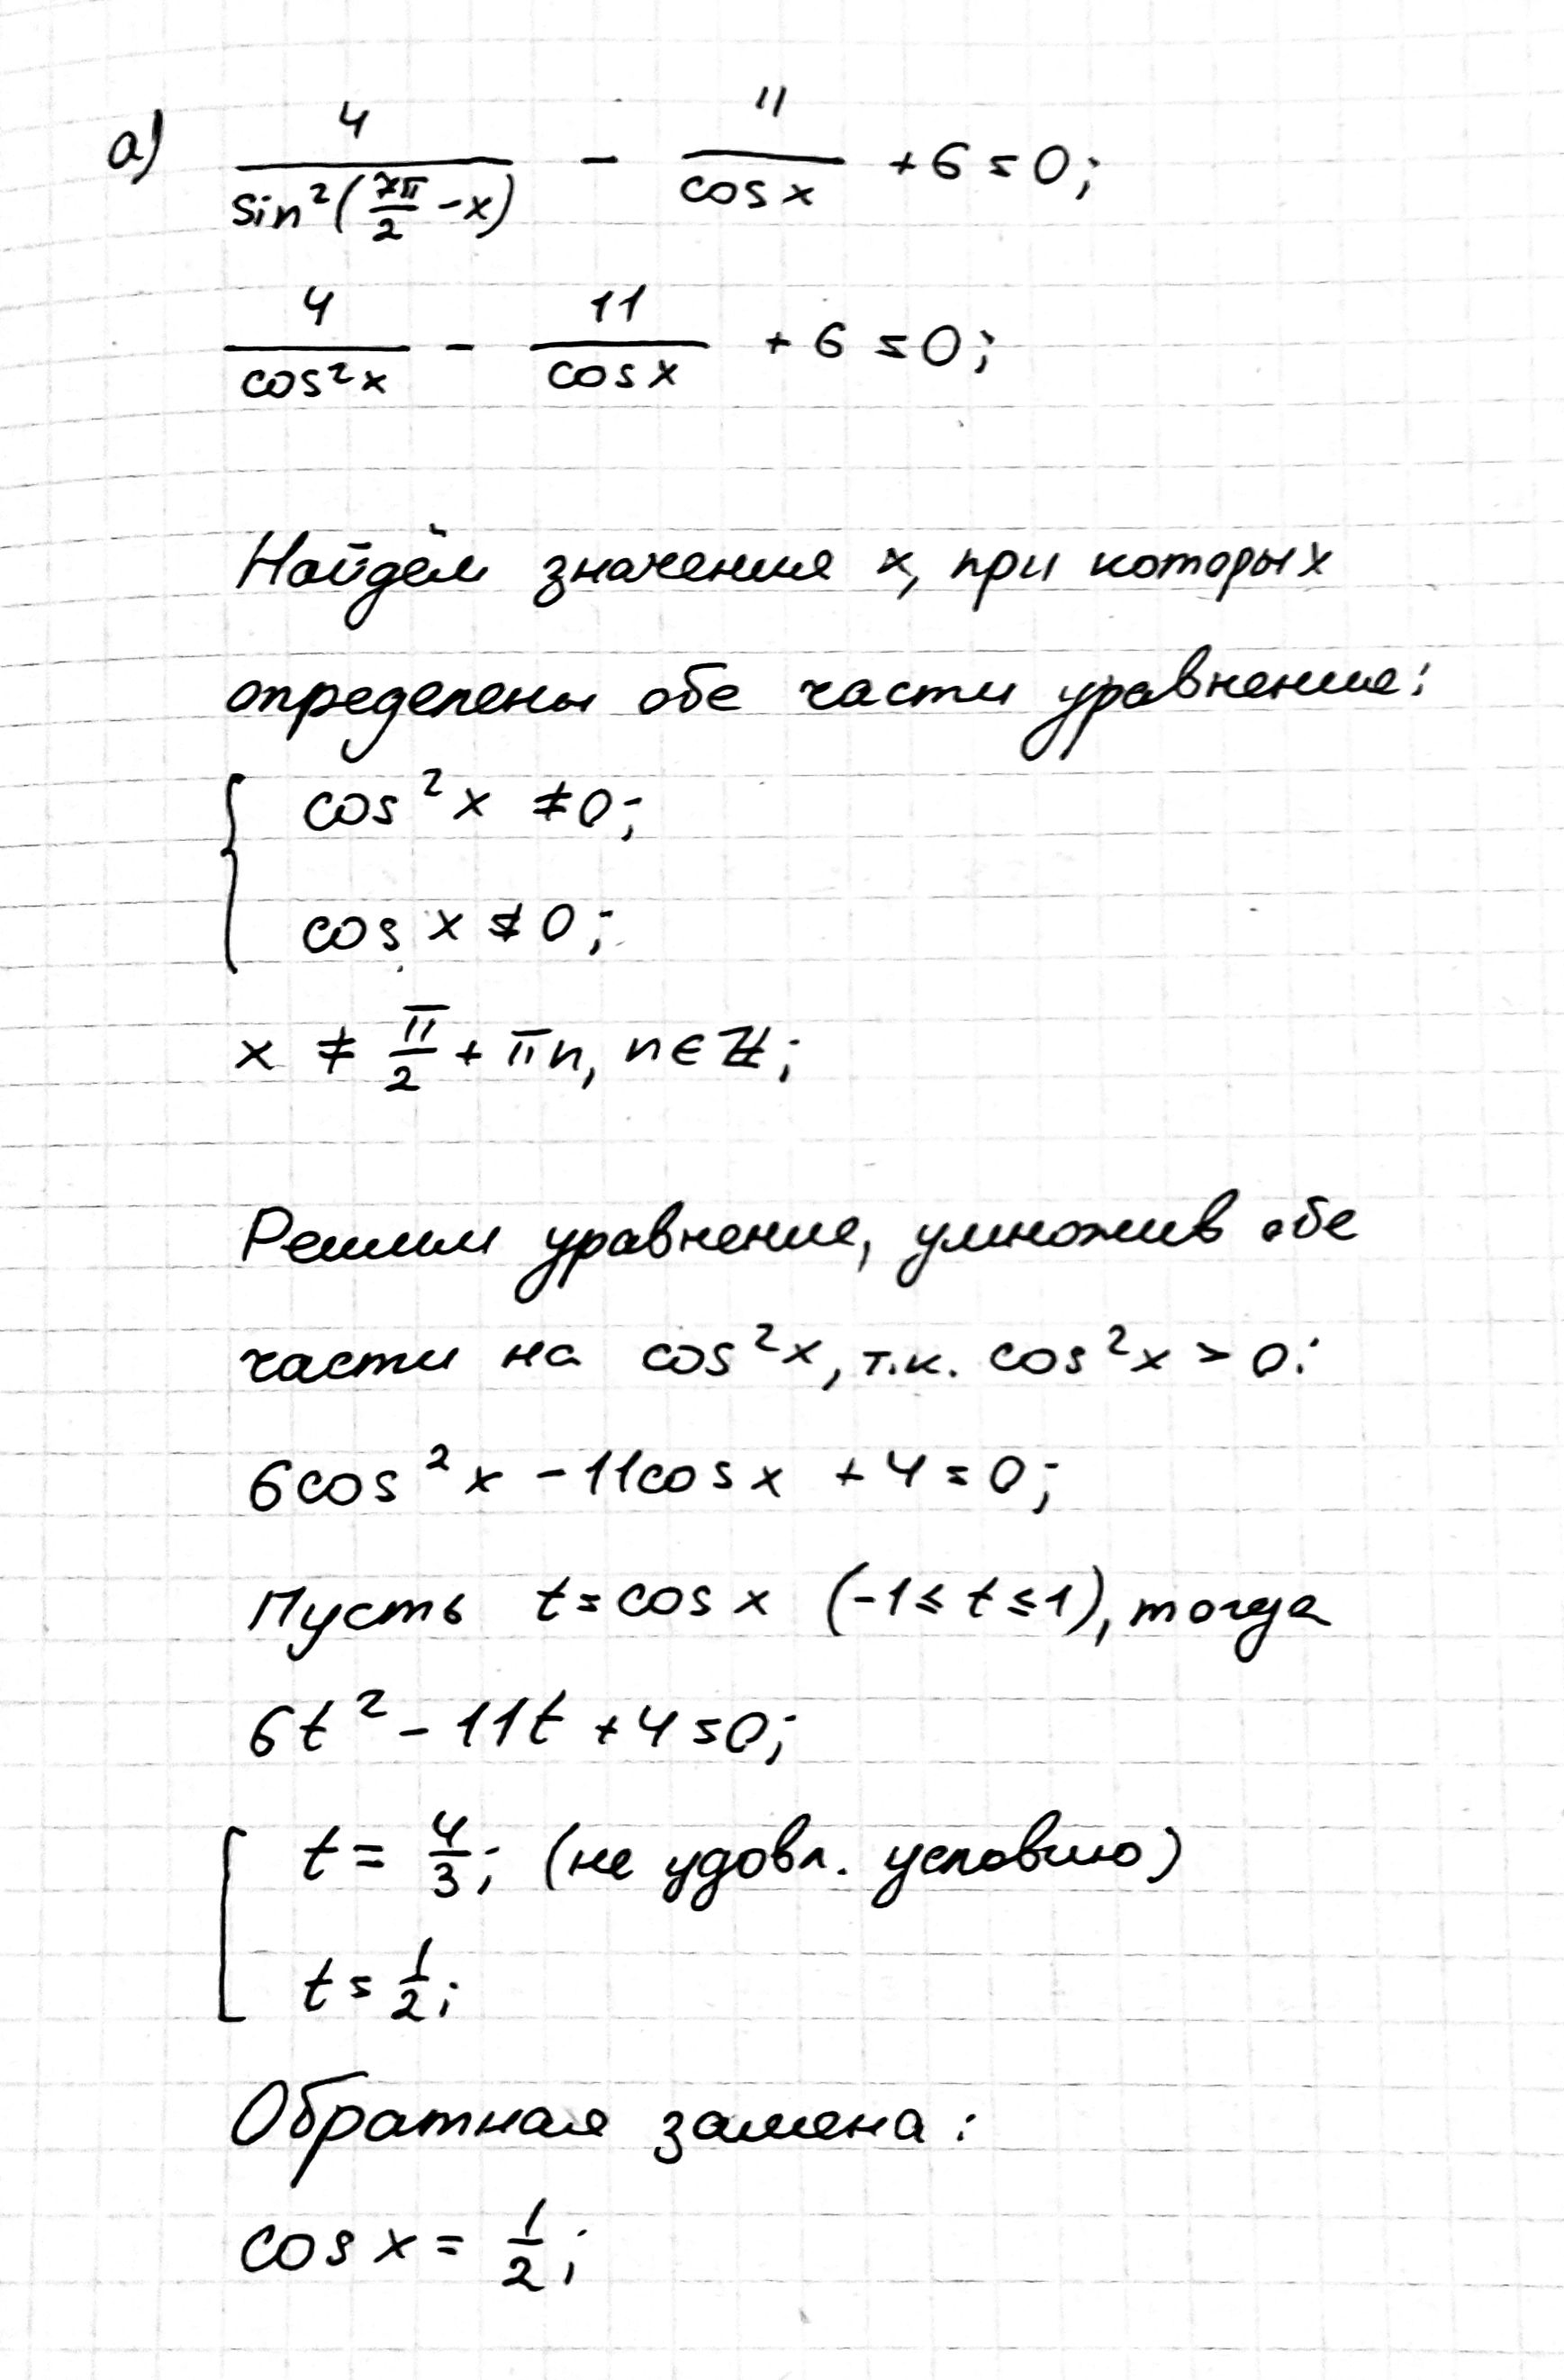 а) 4/sin²(7π/2 - x) - 11/cos x + 6 = 0;
4/cos²x - 11/cos x + 6 = 0;
Найдём значения x, при которых
определены обе части уравнение:
{ cos²x ≠ 0;
cos x ≠ 0;
x ≠ π/2 + πn, n ∈ ℤ;
Решим уравнение, умножив обе
части на cos²x, т.к. cos²x > 0:
6cos²x - 11cos x + 4 = 0;
Пусть t = cos x (-1 ≤ t ≤ 1), тогда
6t² - 11t + 4 = 0;
[ t = 4/3; (не удовл. условию)
t = 1/2;
Обратная замена:
cos x = 1/2;